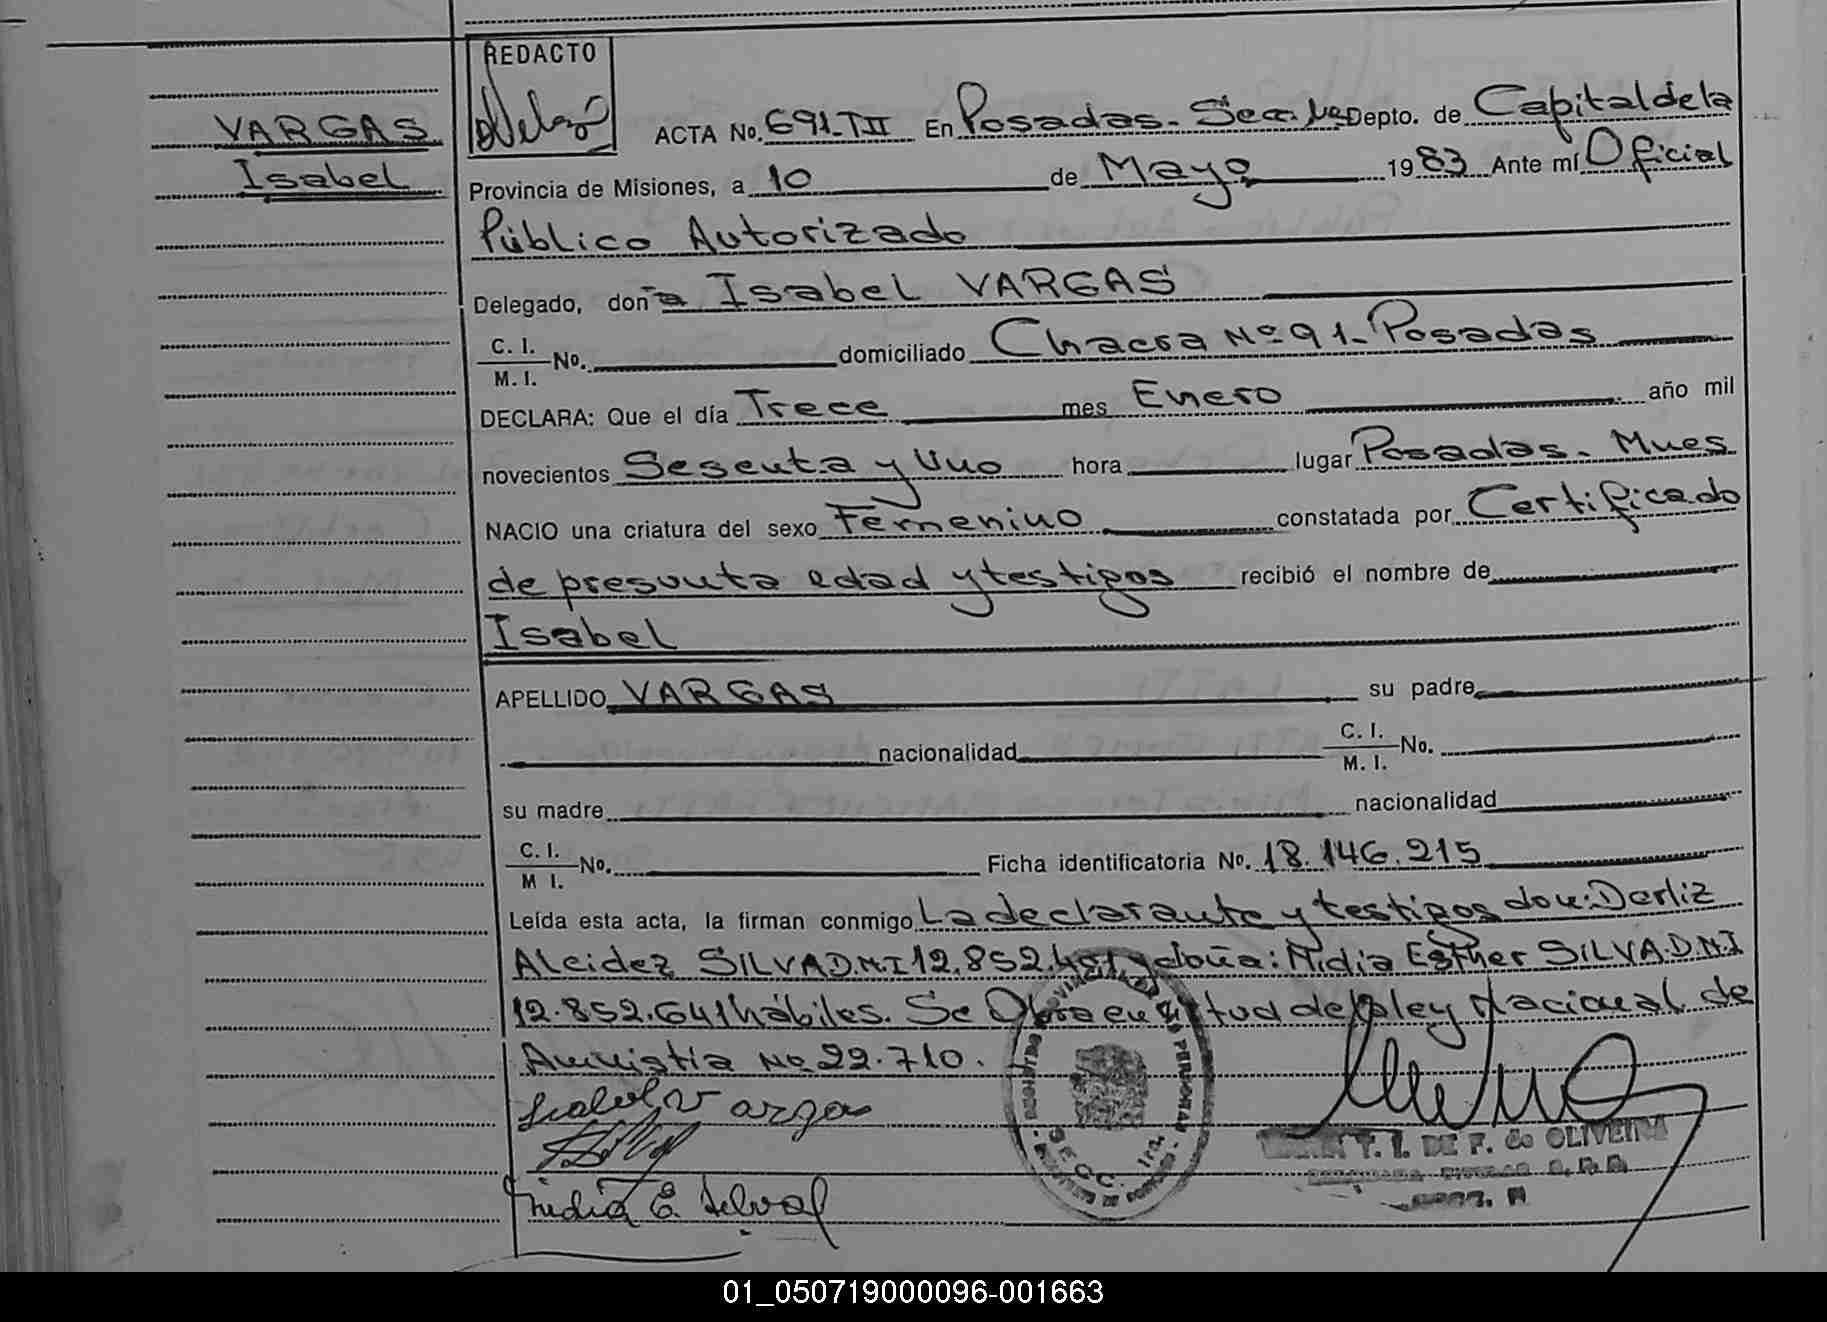 REDACTO
VARGAS
Isabel
ACTA No. 691-TII En Posadas. Secc. Depto. de Capital de la
Provincia de Misiones, a 10 de Mayo 1983 Ante mí Oficial
Público Autorizado
Delegado, don a Isabel VARGAS
C. I.
M. I. No. domiciliado Chacra Nº 91- Posadas
DECLARA: Que el día Trece mes Enero año mil
novecientos Sesenta y Uno hora lugar Posadas. Mnes
NACIO una criatura del sexo Femenino constatada por Certificado
de presunta edad y testigos recibió el nombre de
Isabel
APELLIDO VARGAS su padre
nacionalidad C. I.
M. I. No.
su madre nacionalidad
C. I.
M I. No. Ficha identificatoria No. 18.146.215
Leída esta acta, la firman conmigo La declarante y testigos don: Derliz
Alcidez SILVA D.M.I 12.852.481 y doña: Nidia Esther SILVA. D.M.I
12.852.641 hábiles. Se Obra en virtud de la ley Nacional de
Amnistía No 22.710.
Isabel Vargas
Nidia E. Silva
T. I. DE F. de OLIVEIRA
01_050719000096-001663